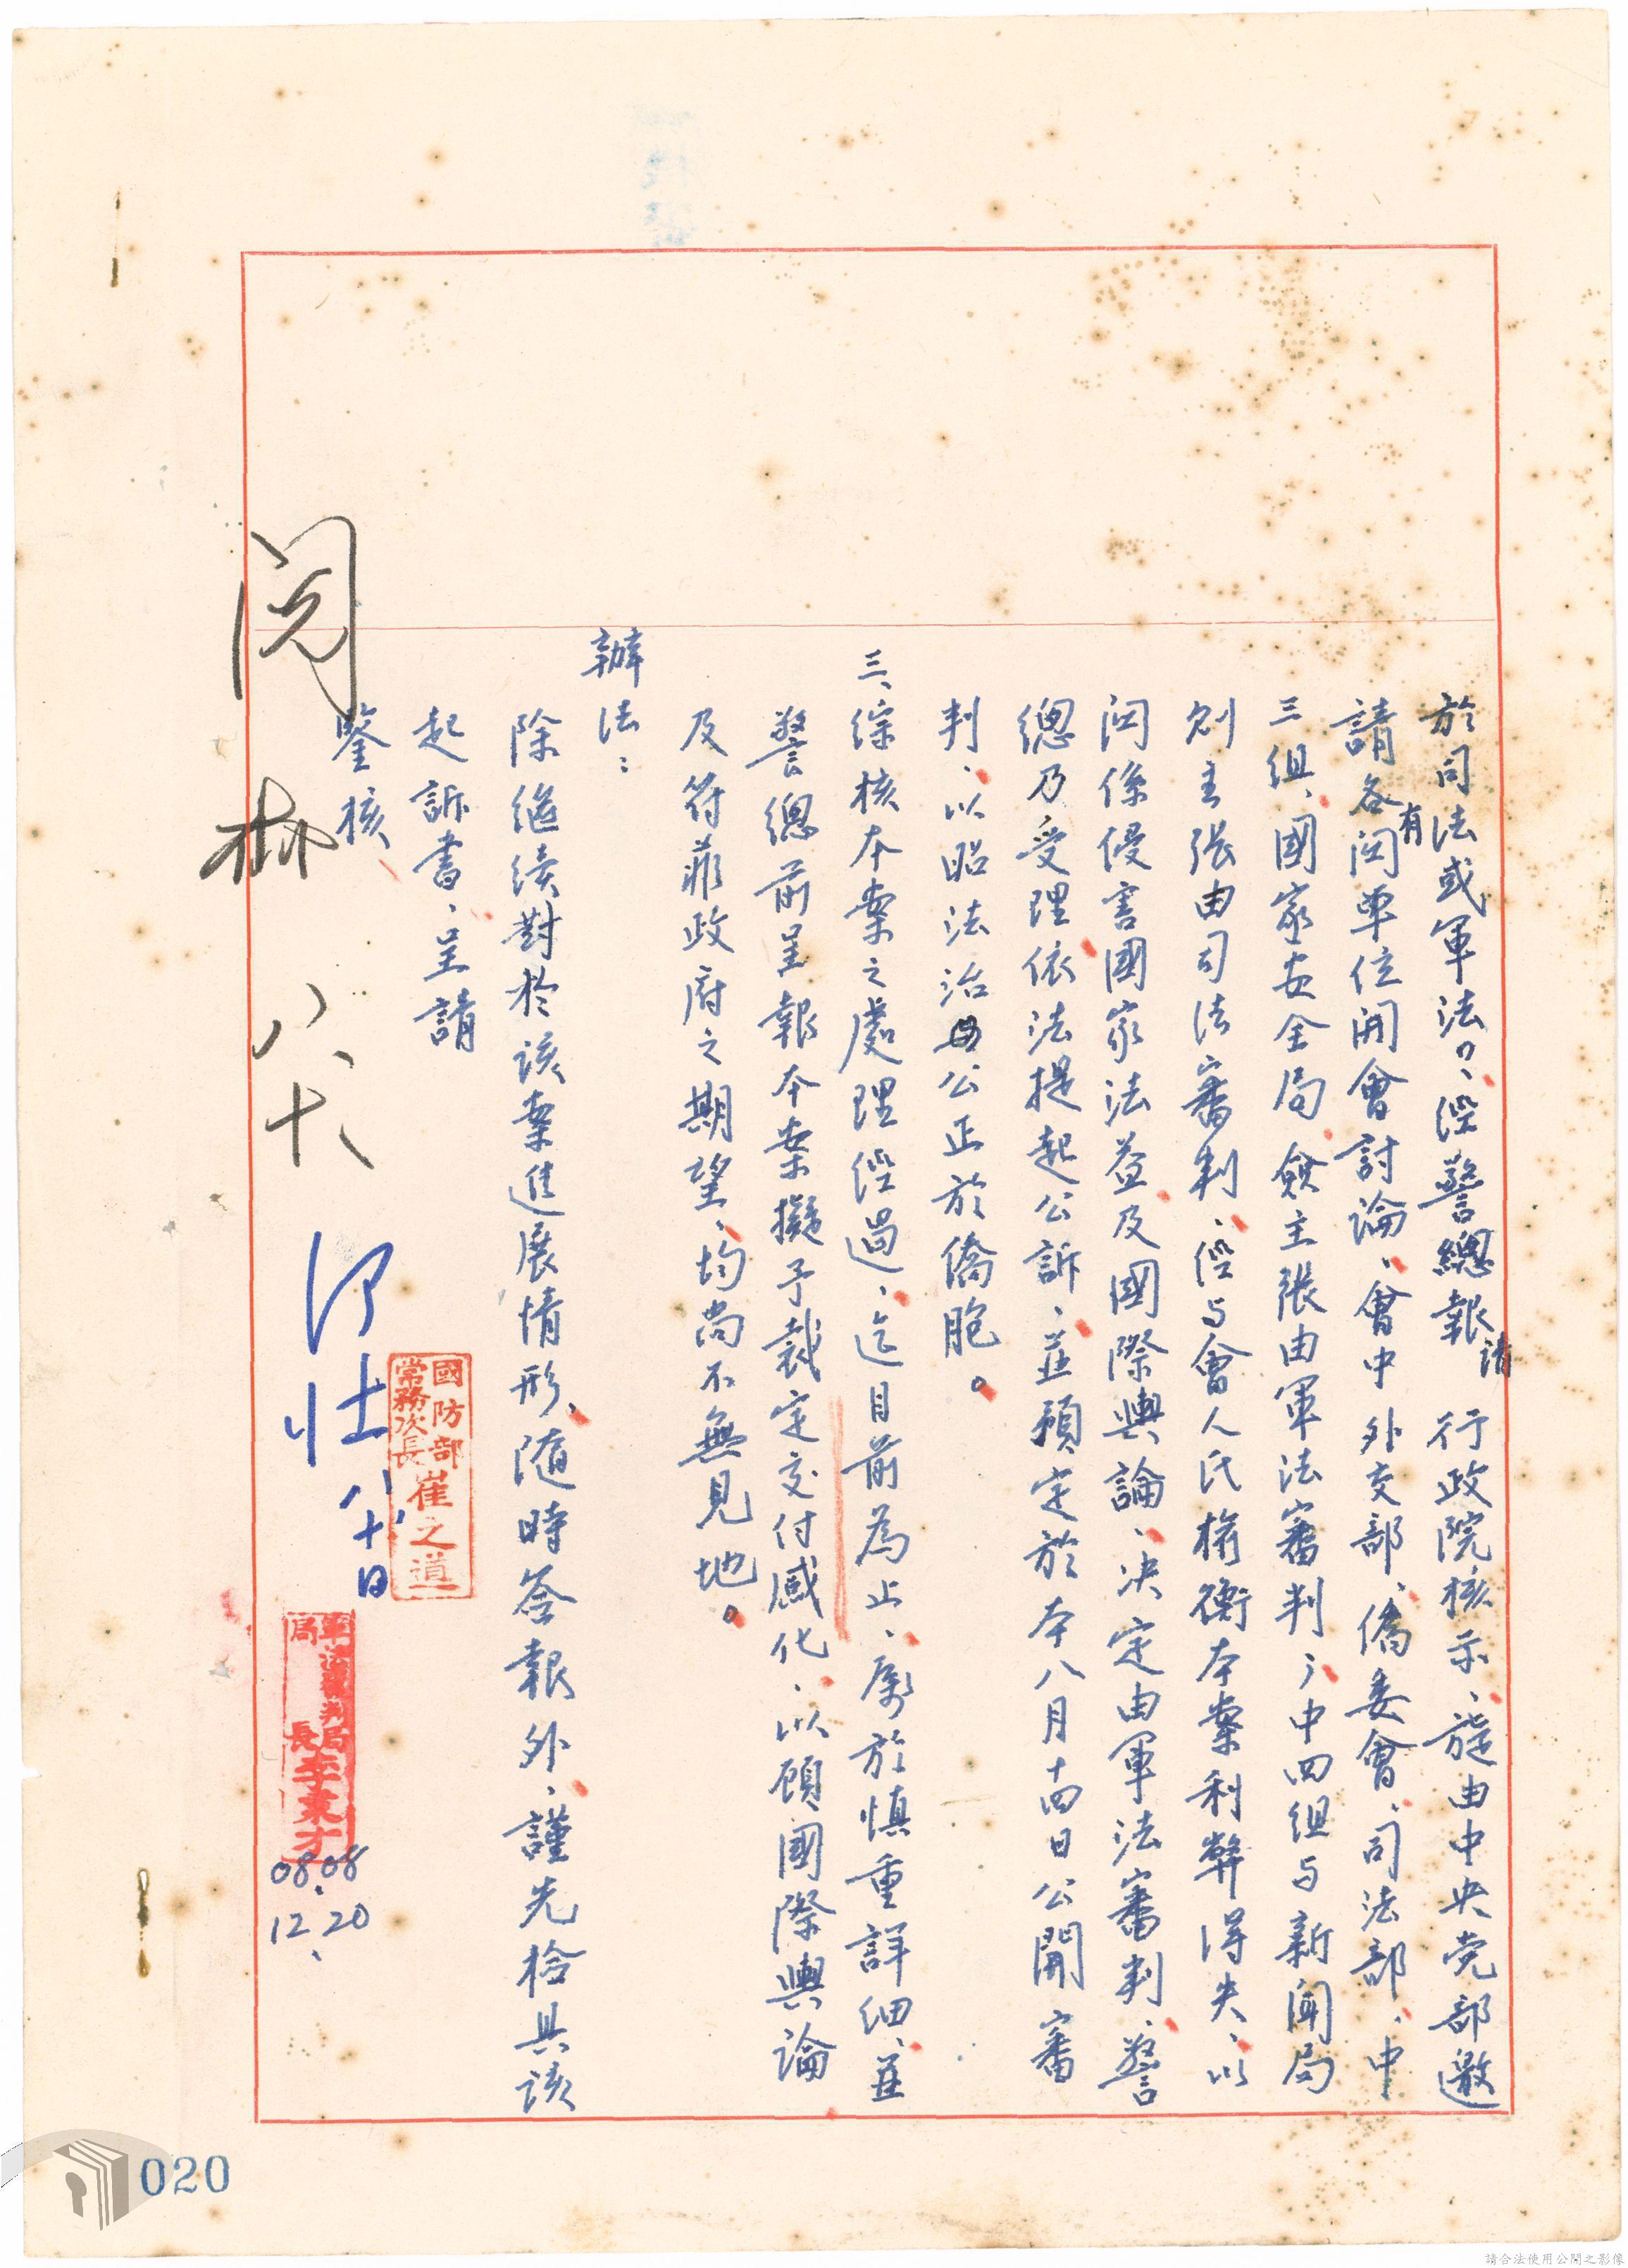 於司法或軍法?、經警總報請 行政院核示、旋由中央党部邀
請各有関單位開會討論、會中外交部、僑委會、司法部、中
三組、國家安全局僉主張由軍法審判;中四組与新聞局
則主張由司法審判、經与會人氏権衡本案利弊得失、以
関係侵害國家法益及國際輿論、决定由軍法審判、警
總乃受理依法提起公訴、並預定於本八月十四日公開審
判、以昭法治公正於僑胞。
三、綜核本案之處理經過、迄目前為止、屬於慎重詳細、並
警總前呈報本案擬予裁定交付感化、以顧國際輿論
及符菲政府之期望、均尚不無見地。
辦法:
除繼续對於該案進展情形、随時簽報外、謹先檢具該
起訴書、呈請
鑒核
國防部
常務次長崔之道
八十日
閲
八十
軍法覆判局
局長李東才
08.08
12.20
020
請合法使用公開之影像